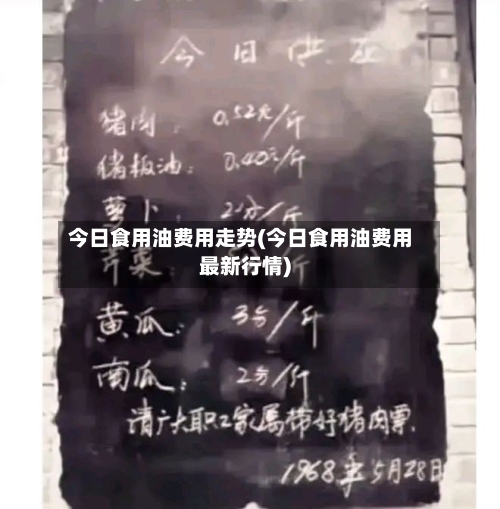 今日供应
猪肉：0.52元/斤
猪板油：0.40元/斤
萝卜：2分/斤
今日食用油费用走势(今日食用油费用
最新行情)
芹菜： 斤
黄瓜：3分/斤
南瓜：2分/斤
请广大职工家属带好猪肉票
1968年5月28日